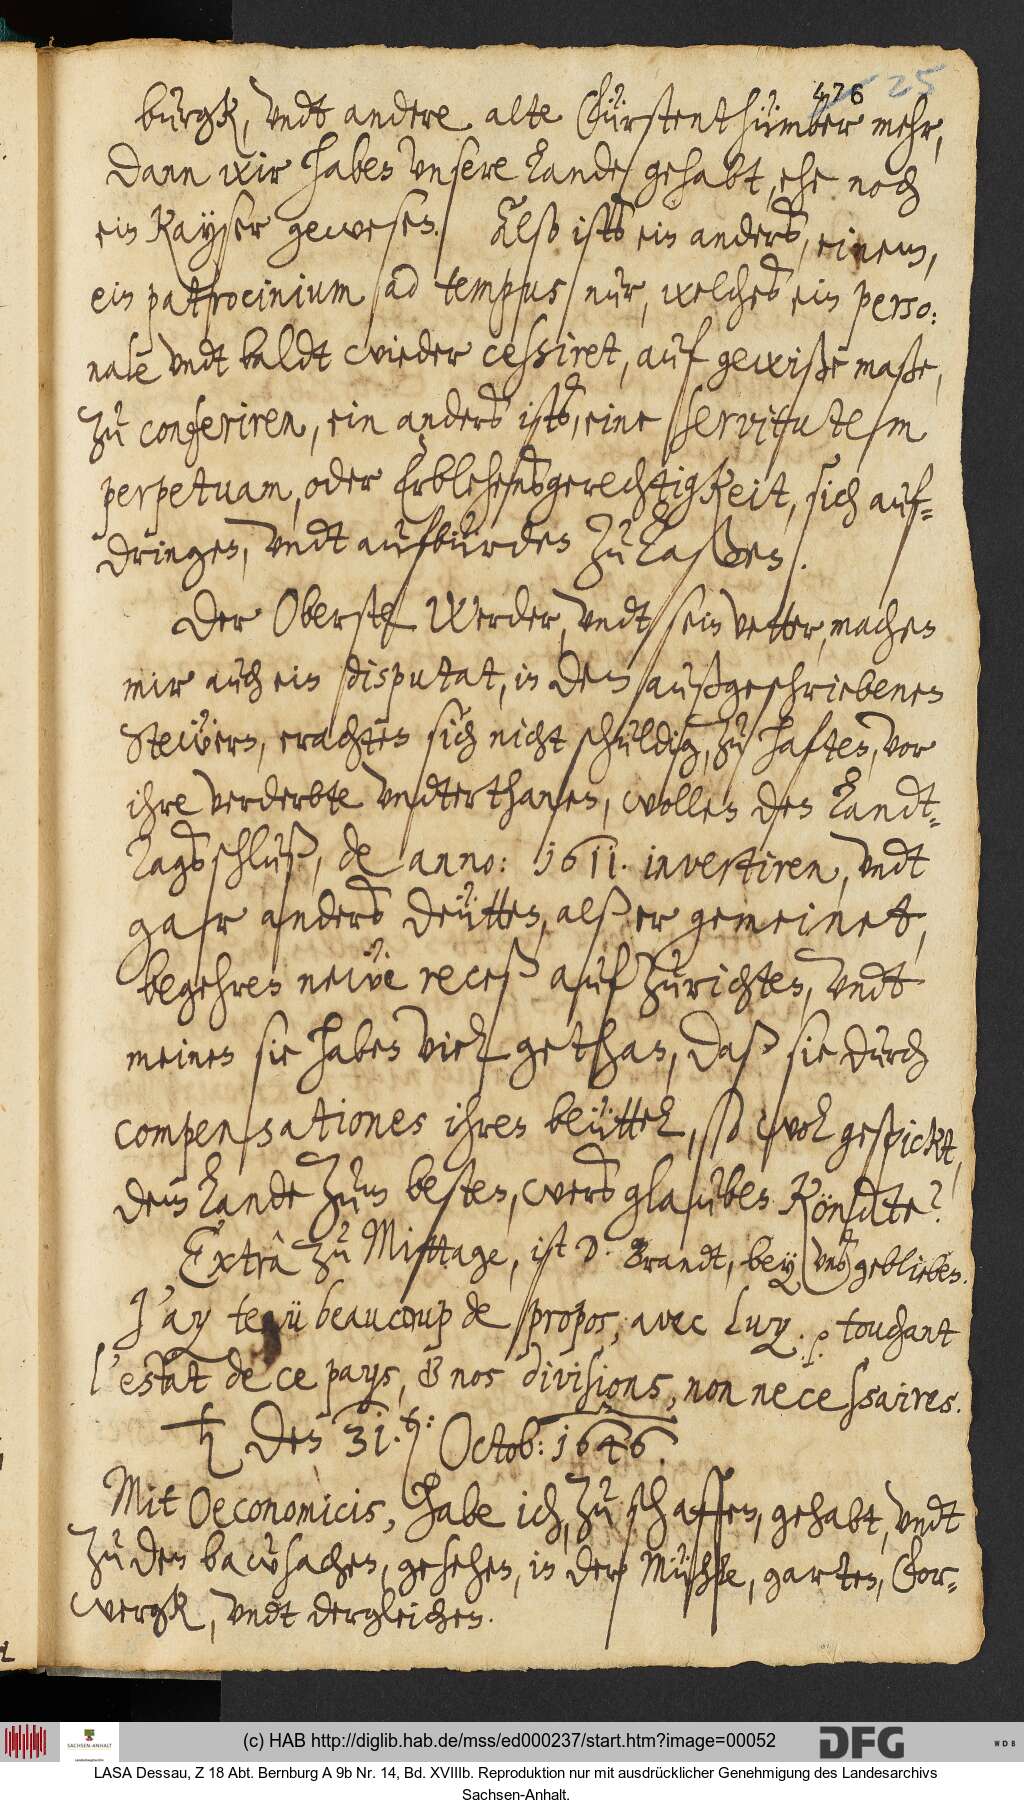 476 25
burgk, vndt andere alte Fürstenthümber mehr,
dann wir haben vnsere Lande gehabt, ehe noch
ein Kayser gewesen. Alß ists ein anders, einem,
ein patrocinium ad tempus nur, welches ein perso:
nale vndt baldt wieder cessiret, auf gewiße maße,
zu conferiren, ein anders ists, eine servitutem
perpetuam, oder Erblehensgerechtigkeit, sich auf-
dringen, vndt aufbürden zu laßen.
Der Oberste Werder, vndt sein vetter, machen
mir auch ein disputat, in den außgeschriebenen
Steüern, erachten sich nicht schuldig, zu haften, vor
ihre verderbte vndterthanen, wollen den Landt-
Tagsschluß, de anno: 1611. invertiren, vndt
gar anders deütten, alß er gemeinet,
begehren neẅe receß aufzurichten, vndt
meinen sie haben viel gethan, daß sie durch
compensationes ihren beüttel, so wol gespickt,
dem Lande zum besten, wers glauben köndte?
Extra zu Mittage, ist D. Brandt, bey vns geblieben.
J'ay tenü beaucoup de propos, avec luy. touchant
l'estat de ce pays, & nos divisions, non necessaires.
♄ den 31. Octob: 1646.
Mit Oeconomicis, habe ich, zu schaffen, gehabt, vndt
zu den baẅsachen, gesehen, in der Mühle, garten, Vor-
wergk, vndt dergleichen.
(c) HAB http://diglib.hab.de/mss/ed000237/start.htm?image=00052
SACHSEN-ANHALT
DFG
W D B
LASA Dessau, Z 18 Abt. Bernburg A 9b Nr. 14, Bd. XVIIIb. Reproduktion nur mit ausdrücklicher Genehmigung des Landesarchivs
Sachsen-Anhalt.